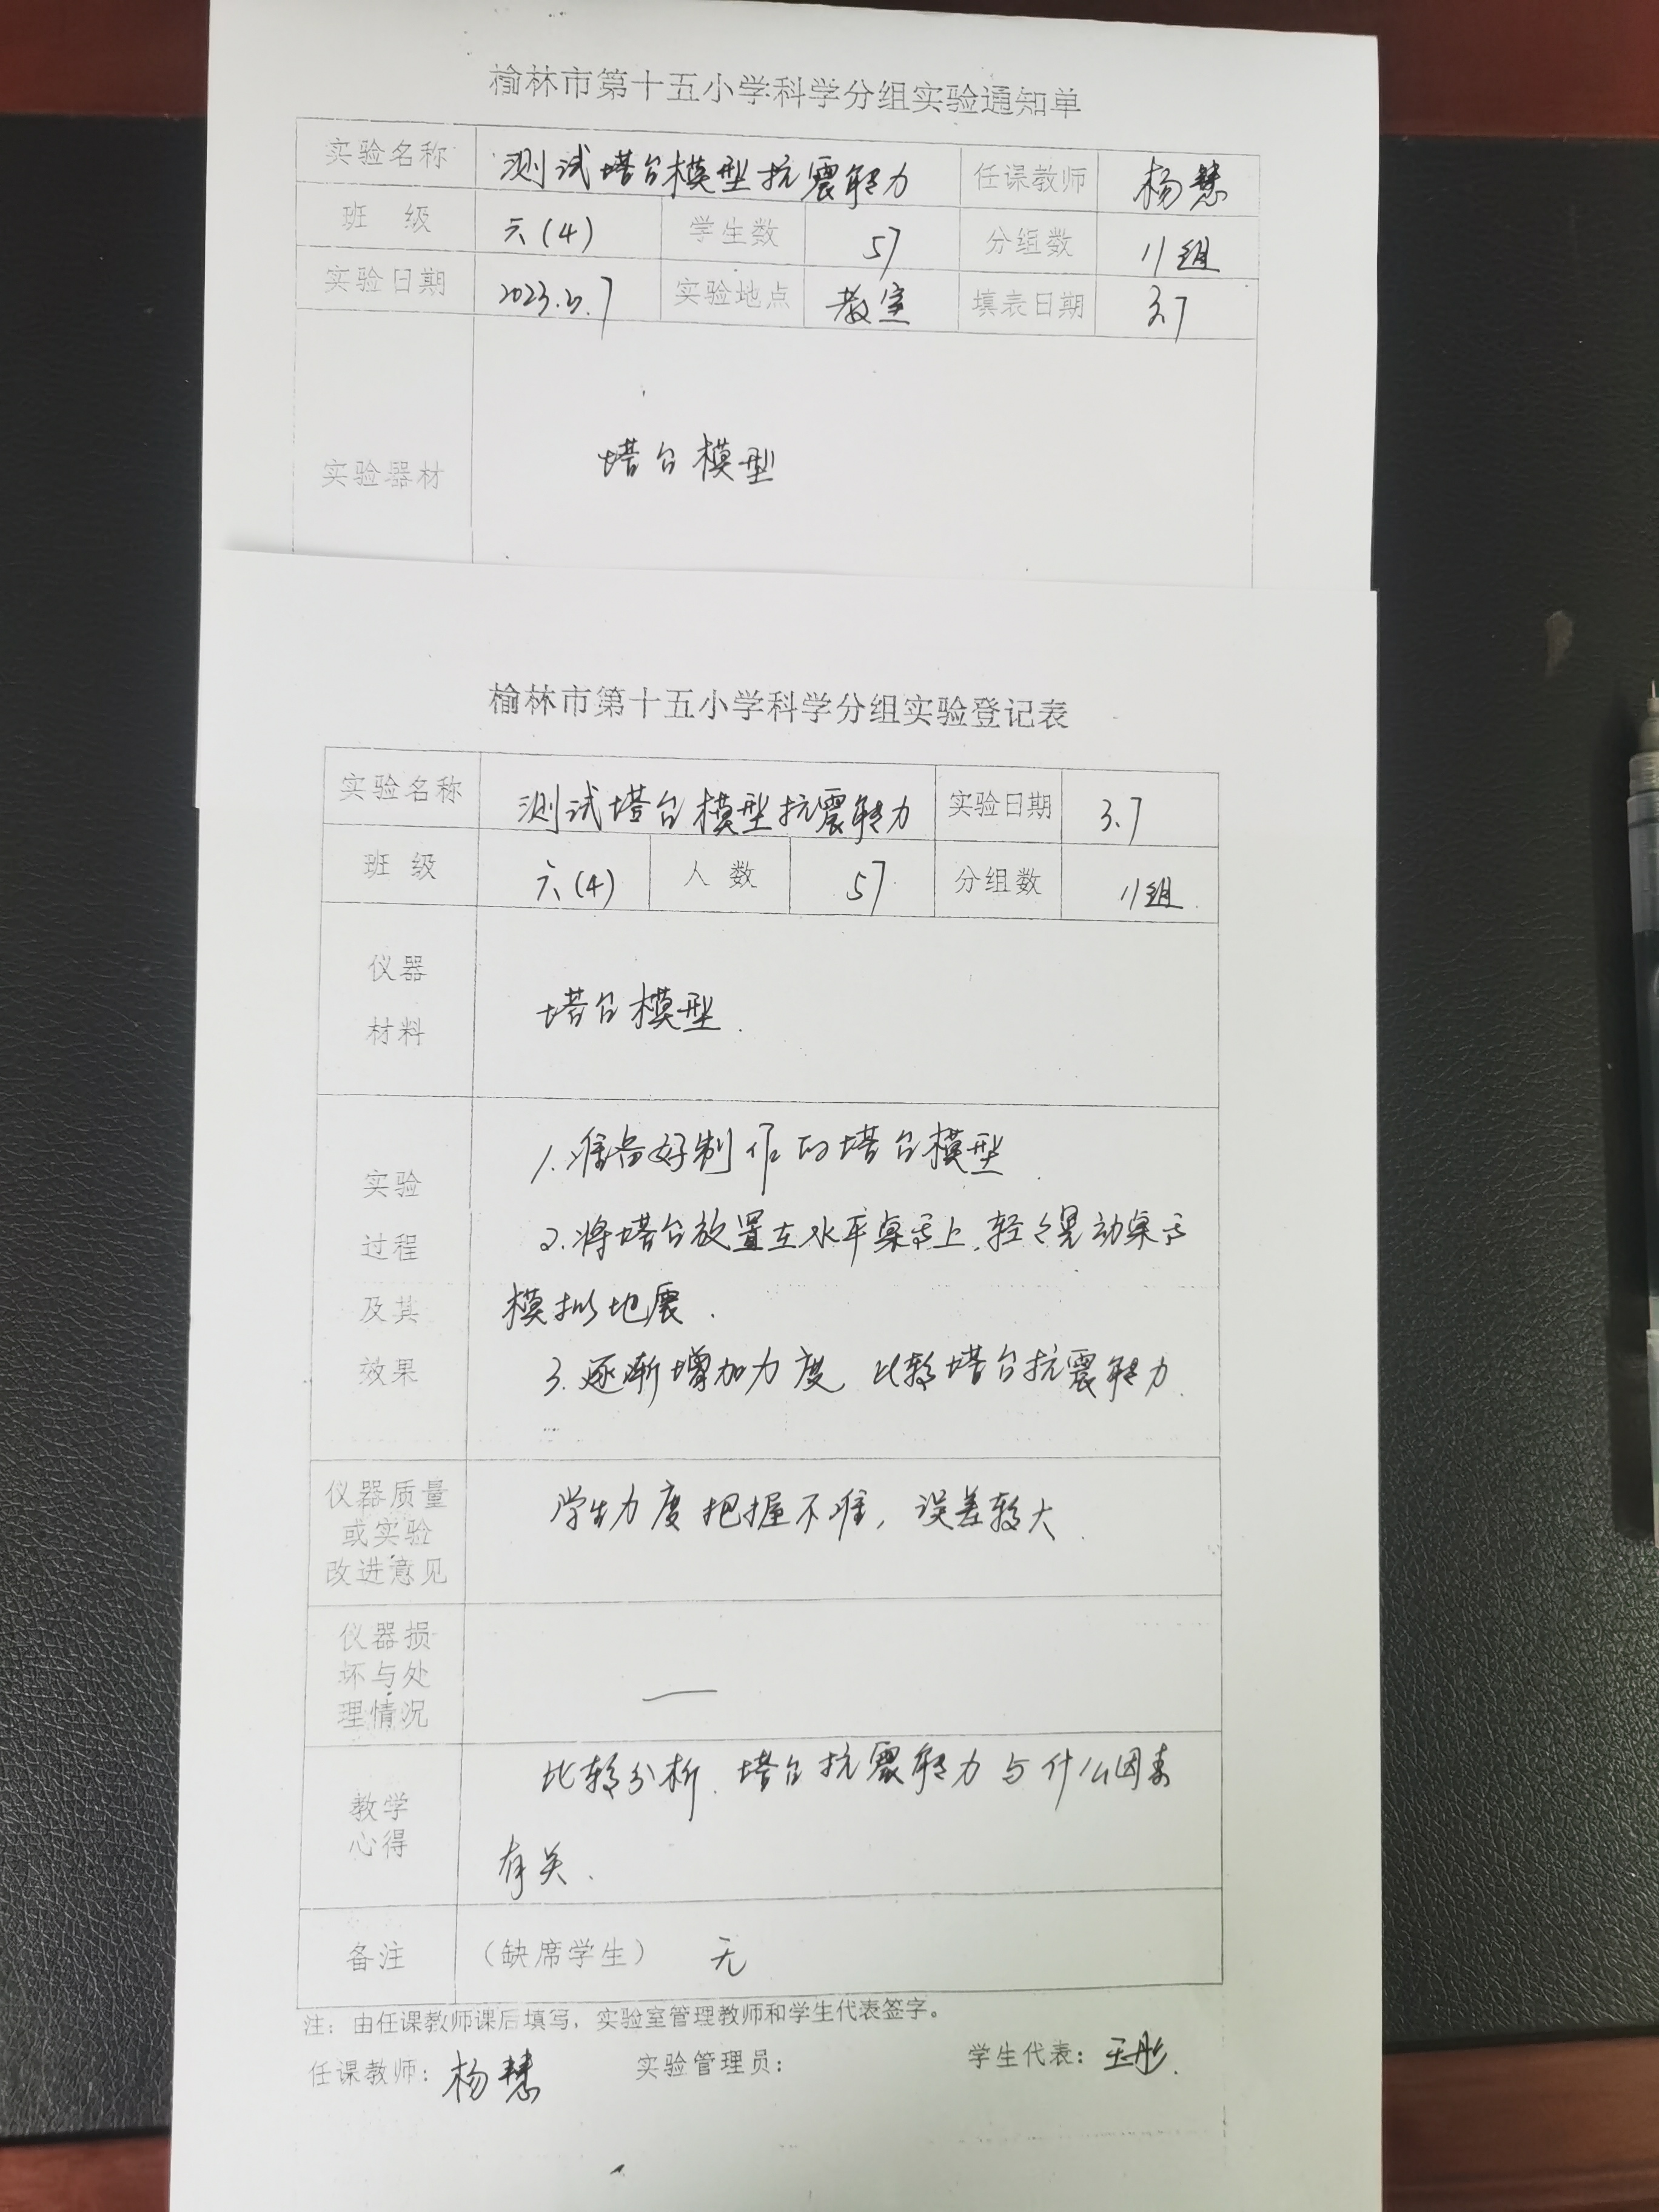 榆林市第十五小学科学分组实验通知单
实验名称 测试塔台模型抗震能力 任课教师 杨慧
班 级 六(4) 学生数 57 分组数 11组
实验日期 2023.3.7 实验地点 教室 填表日期 3.7
实验器材 塔台模型
榆林市第十五小学科学分组实验登记表
实验名称 测试塔台模型抗震能力 实验日期 3.7
班 级 六(4) 人 数 57 分组数 11组
仪器
材料
塔台模型.
实验
过程
及其
效果
1.准备好制作的塔台模型.
2.将塔台放置在水平桌面上,轻轻晃动桌面
模拟地震.
3.逐渐增加力度,比较塔台抗震能力.
仪器质量
或实验
改进意见
学生力度把握不准,误差较大.
仪器损
坏与处
理情况
—
教学
心得
比较分析,塔台抗震能力与什么因素
有关.
备注 (缺席学生) 无
注:由任课教师课后填写,实验室管理教师和学生代表签字。
任课教师:杨慧 实验管理员: 学生代表:王彤.